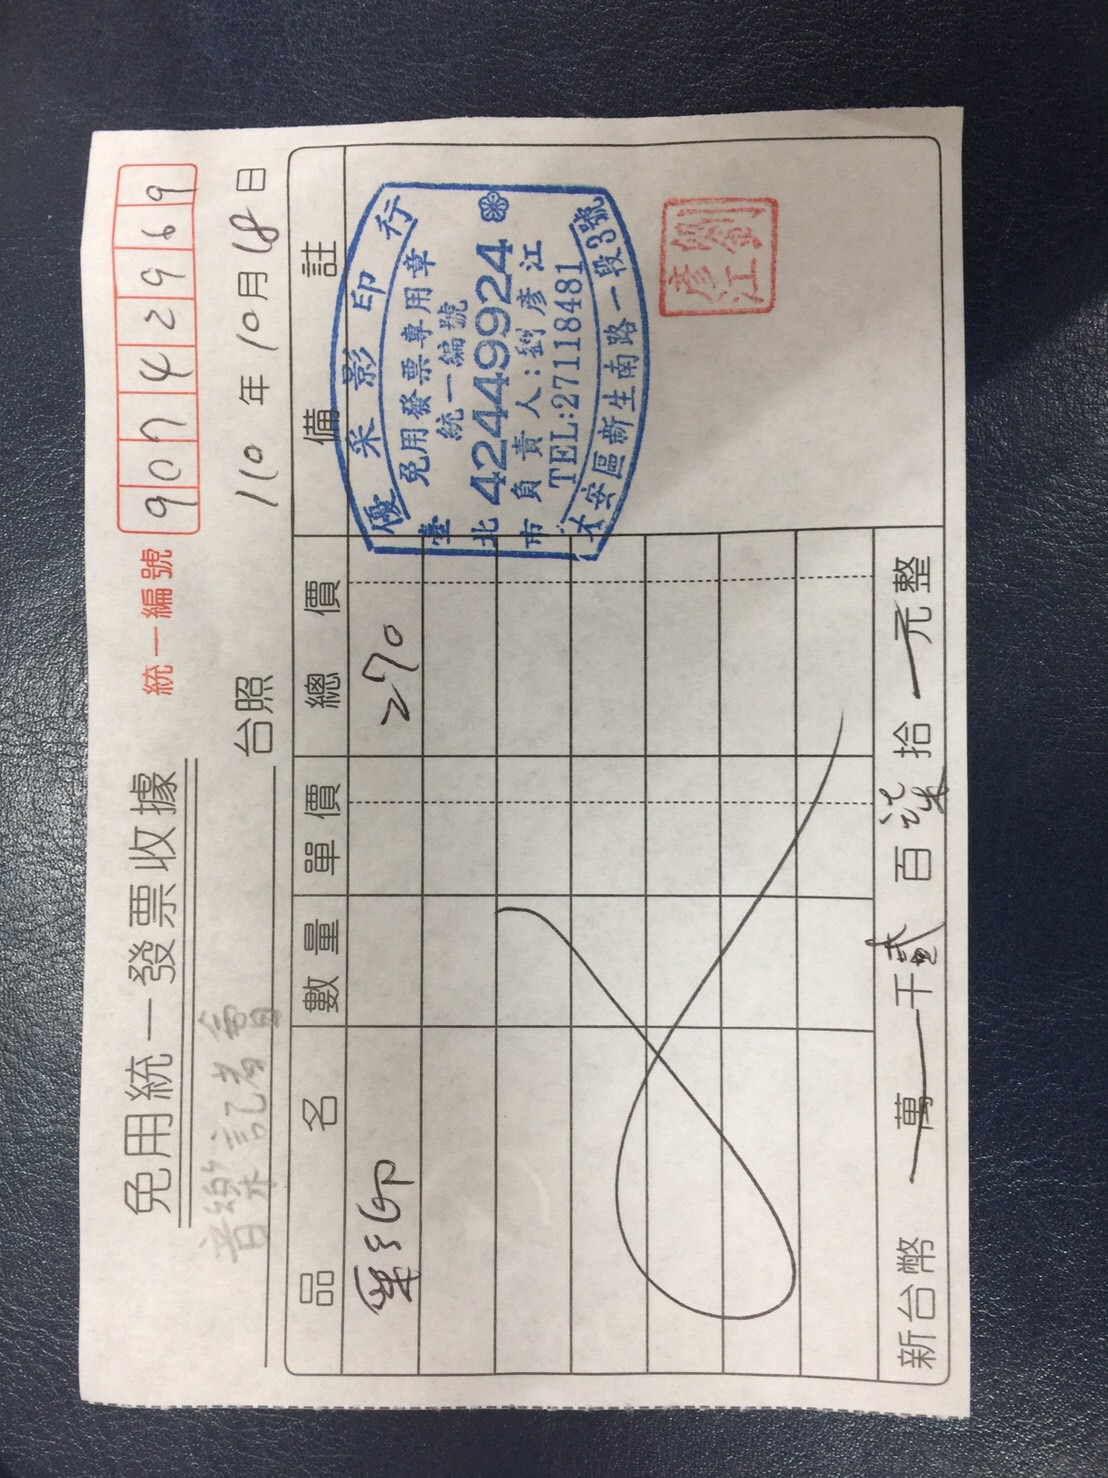 免用統一發票收據
統一編號 90742969
音樂記者會 台照
110年10月18日
品名 數量 單價 總價 備註
彩印 270
優采影印行
免用發票專用章
統一編號
42449924
負責人:劉彥江
TEL:27118481
臺北市大安區新生南路一段3號
劉彥江
新台幣 萬 千貳百柒拾 元整